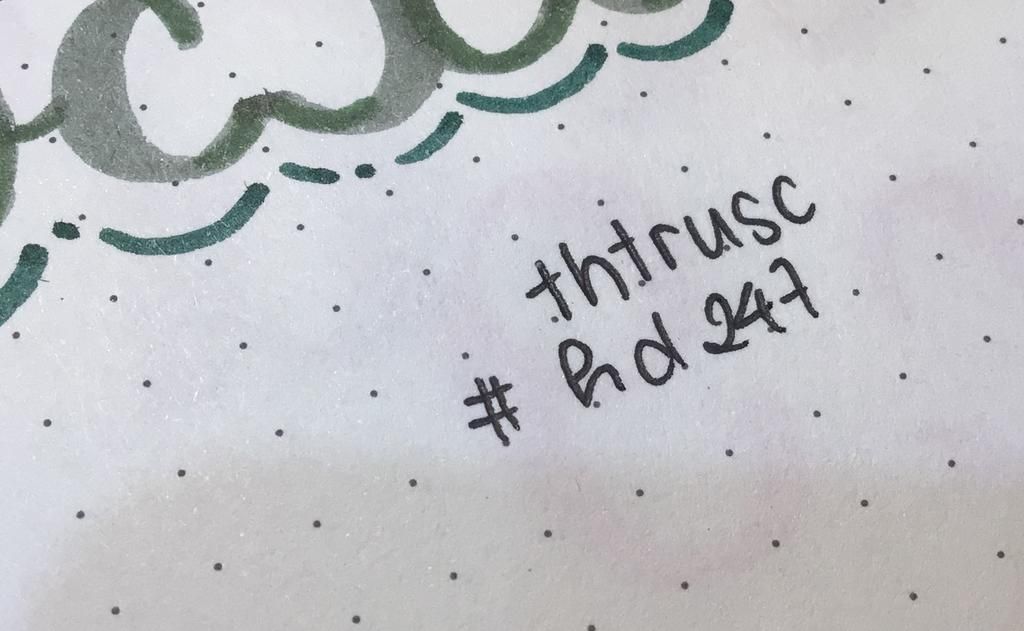 thtrusc
# hd 247